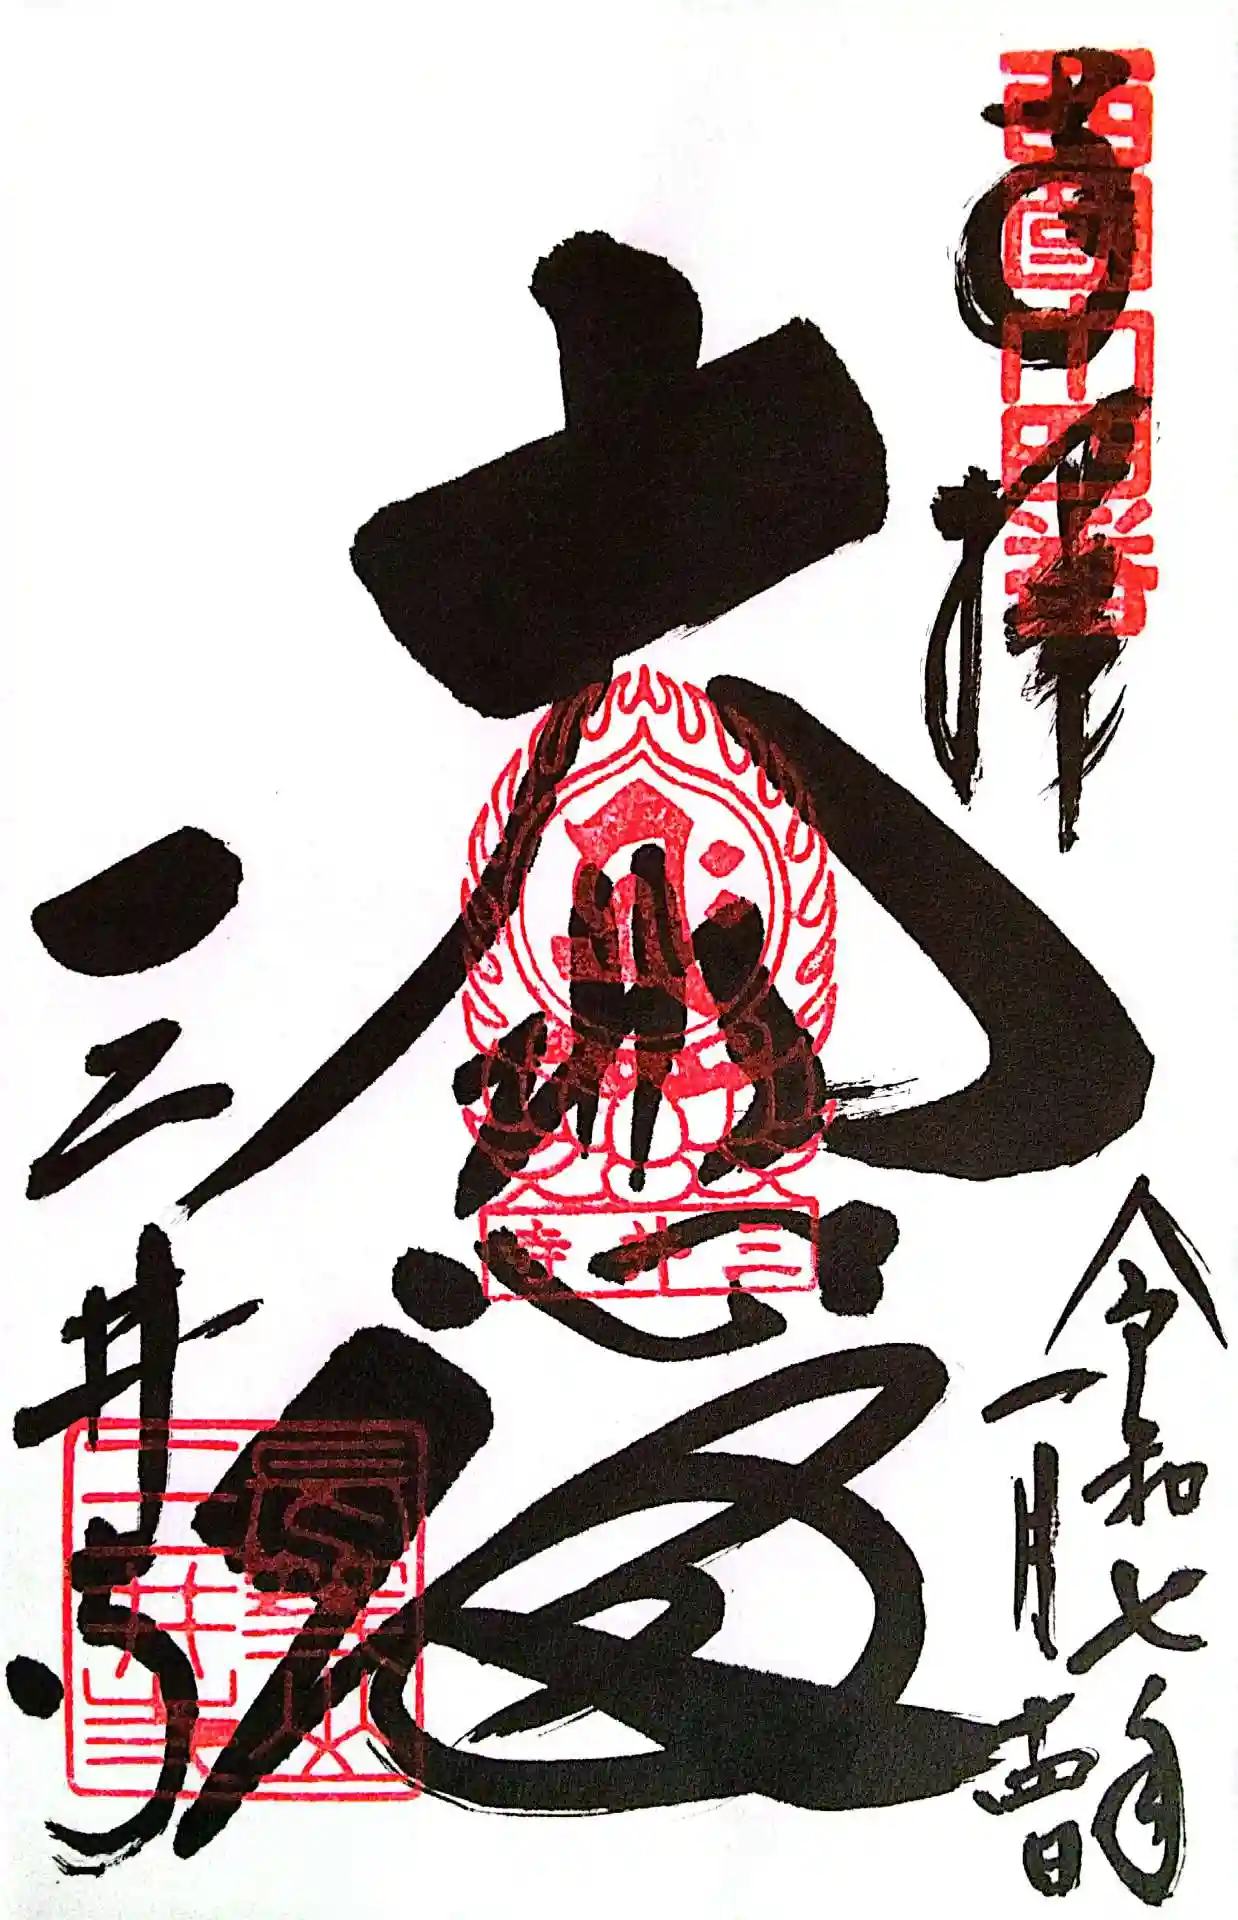 奉拝
西國十四番
令和七年
一月吉日
大悲殿
三井寺
三井寺